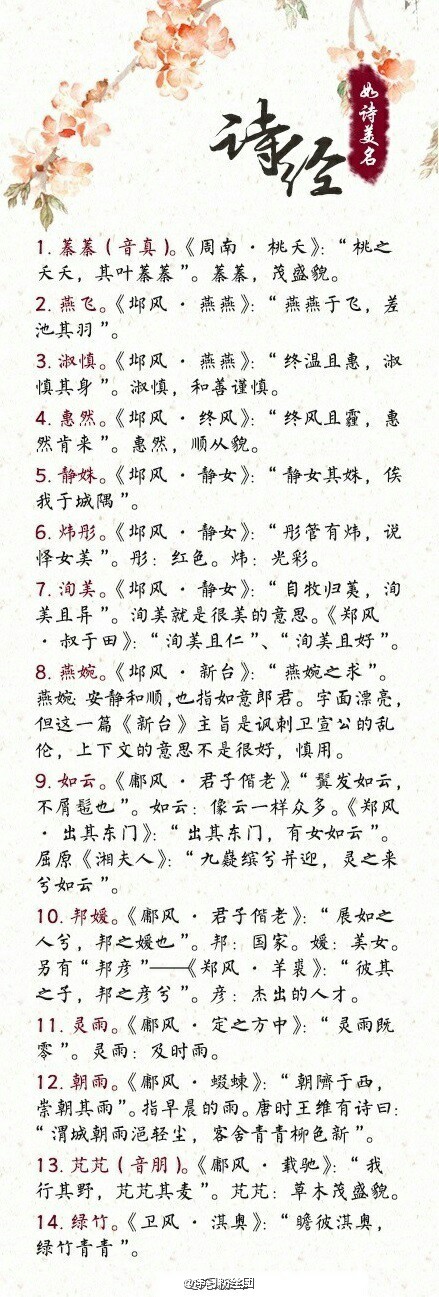 如诗美名
诗经
1. 蓁蓁（音真）。《周南·桃夭》：“桃之
夭夭，其叶蓁蓁”。蓁蓁，茂盛貌。
2. 燕飞。《邶风·燕燕》：“燕燕于飞，差
池其羽”。
3. 淑慎。《邶风·燕燕》：“终温且惠，淑
慎其身”。淑慎，和善谨慎。
4. 惠然。《邶风·终风》：“终风且霾，惠
然肯来”。惠然，顺从貌。
5. 静姝。《邶风·静女》：“静女其姝，俟
我于城隅”。
6. 炜彤。《邶风·静女》：“彤管有炜，说
怿女美”。彤：红色。炜：光彩。
7. 洵美。《邶风·静女》：“自牧归荑，洵
美且异”。洵美就是很美的意思。《郑风
·叔于田》：“洵美且仁”、“洵美且好”。
8. 燕婉。《邶风·新台》：“燕婉之求”。
燕婉 安静和顺，也指如意郎君。字面漂亮，
但这一篇《新台》主旨是讽刺卫宣公的乱
伦，上下文的意思不是很好，慎用。
9. 如云。《鄘风·君子偕老》“鬒发如云，
不屑髢也”。如云：像云一样众多。《郑风
·出其东门》：“出其东门，有女如云”。
屈原《湘夫人》：“九嶷缤兮并迎，灵之来
兮如云”。
10. 邦媛。《鄘风·君子偕老》：“展如之
人兮，邦之媛也”。邦：国家。媛：美女。
另有“邦彦”——《郑风·羊裘》：“彼其
之子，邦之彦兮”。彦：杰出的人才。
11. 灵雨。《鄘风·定之方中》：“灵雨既
零”。灵雨：及时雨。
12. 朝雨。《鄘风·蝃蝀》：“朝隮于西，
崇朝其雨”。指早晨的雨。唐时王维有诗曰：
“渭城朝雨浥轻尘，客舍青青柳色新”。
13. 芃芃（音朋）。《鄘风·载驰》：“我
行其野，芃芃其麦”。芃芃：草木茂盛貌。
14. 绿竹。《卫风·淇奥》：“瞻彼淇奥，
绿竹青青”。
@学习粉丝团